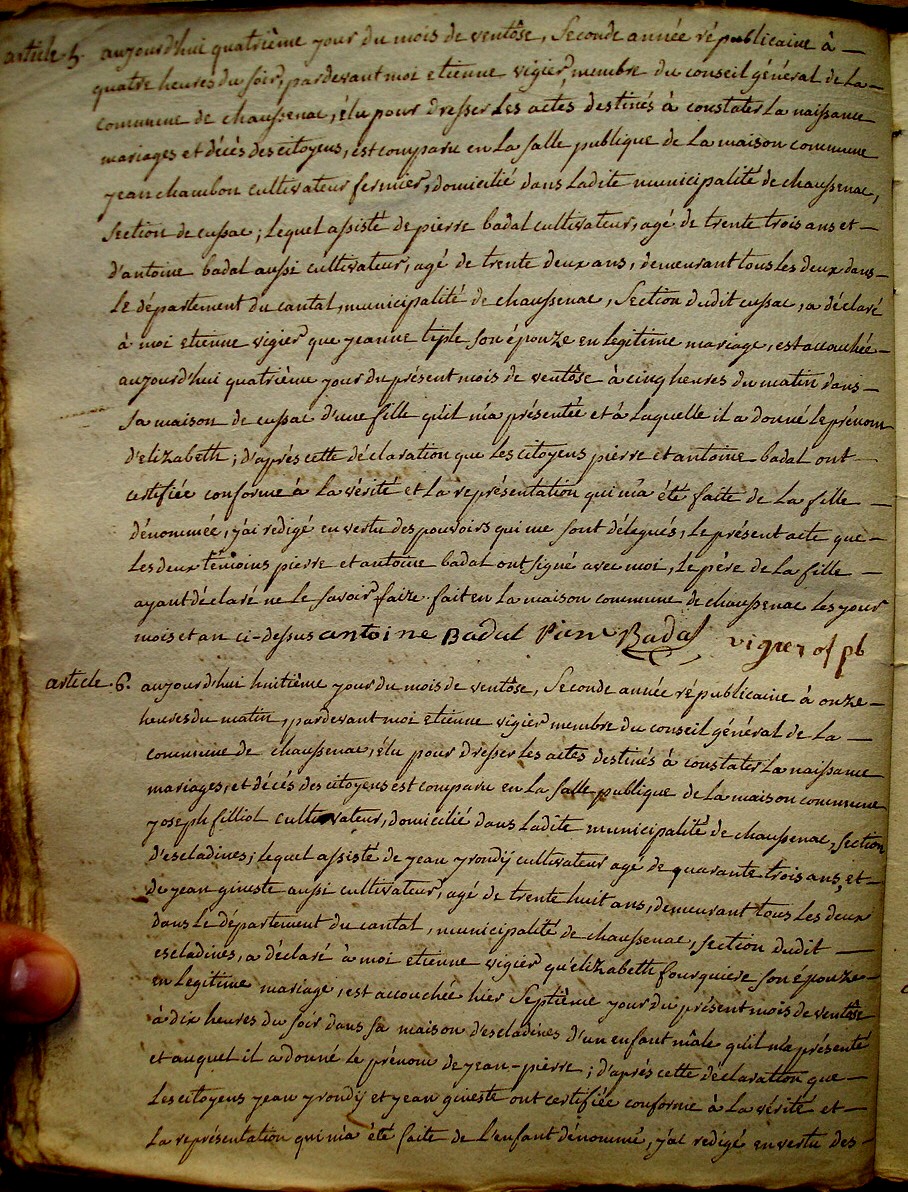 article 5. aujourd'hui quatrième jour du mois de ventôse, seconde année républicaine à —
quatre heures du soir, pardevant moi etienne vigier, membre du conseil général de la —
commune de chaussenac, élu pour dresser les actes destinés à constater la naissance
mariages et décès des citoyens, est comparu en la salle publique de la maison commune
jean chambon cultivateur fermier, domicilié dans ladite municipalité de chaussenac,
section de cussac; lequel assisté de pierre badal cultivateur, agé de trente trois ans et —
d'antoine badal aussi cultivateur, agé de trente deux ans, demeurant tous les deux dans —
le département du cantal, municipalité de chaussenac, section dudit cussac, a déclaré
à moi etienne vigier que jeanne tiple son épouze en legitime mariage, est accouchée —
aujourd'hui quatrième jour du présent mois de ventôse à cinq heures du matin dans —
sa maison de cussac d'une fille qu'il m'a présentée et à laquelle il a donné le prénom
d'elizabeth; d'après cette déclaration que les citoyens pierre et antoine badal ont —
certifiée conforme à la vérité et la représentation qui m'a été faite de la fille —
dénommée, j'ai redigé en vertu des pouvoirs qui me sont délegués, le présent acte que —
les deux témoins pierre et antoine badal ont signé avec moi, le père de la fille —
ayant déclaré ne le savoir faire. fait en la maison commune de chaussenac les jour
mois et an ci-dessus antoine Badal Pierre Badal vigier of pb
article 6. aujourd'hui huitième jour du mois de ventôse, seconde année républicaine à onze —
heures du matin, pardevant moi etienne vigier membre du conseil général de la —
commune de chaussenac, élu pour dresser les actes destinés à constater la naissance
mariages, et décès des citoyens est comparu en la salle publique de la maison commune
joseph filliol cultivateur, domicilié dans ladite municipalité de chaussenac, section
d'escladines; lequel assisté de jean yrondij cultivateur agé de quarante trois ans, et —
de jean gineste aussi cultivateur, agé de trente huit ans, demeurant tous les deux
dans le département du cantal, municipalité de chaussenac, section dudit —
escladines, a déclaré à moi etienne vigier qu'elizabeth fourquiere son épouze —
en legitime mariage, est accouchée hier septième jour du présent mois de ventôse
à dix heures du soir dans sa maison d'escladines d'un enfant mâle qu'il m'a présenté
et auquel il a donné le prénom de jean-pierre; d'après cette déclaration que —
les citoyens jean yrondij et jean gineste ont certifiée conforme à la vérité et —
la représentation qui m'a été faite de l'enfant dénommé, j'ai redigé en vertu des —